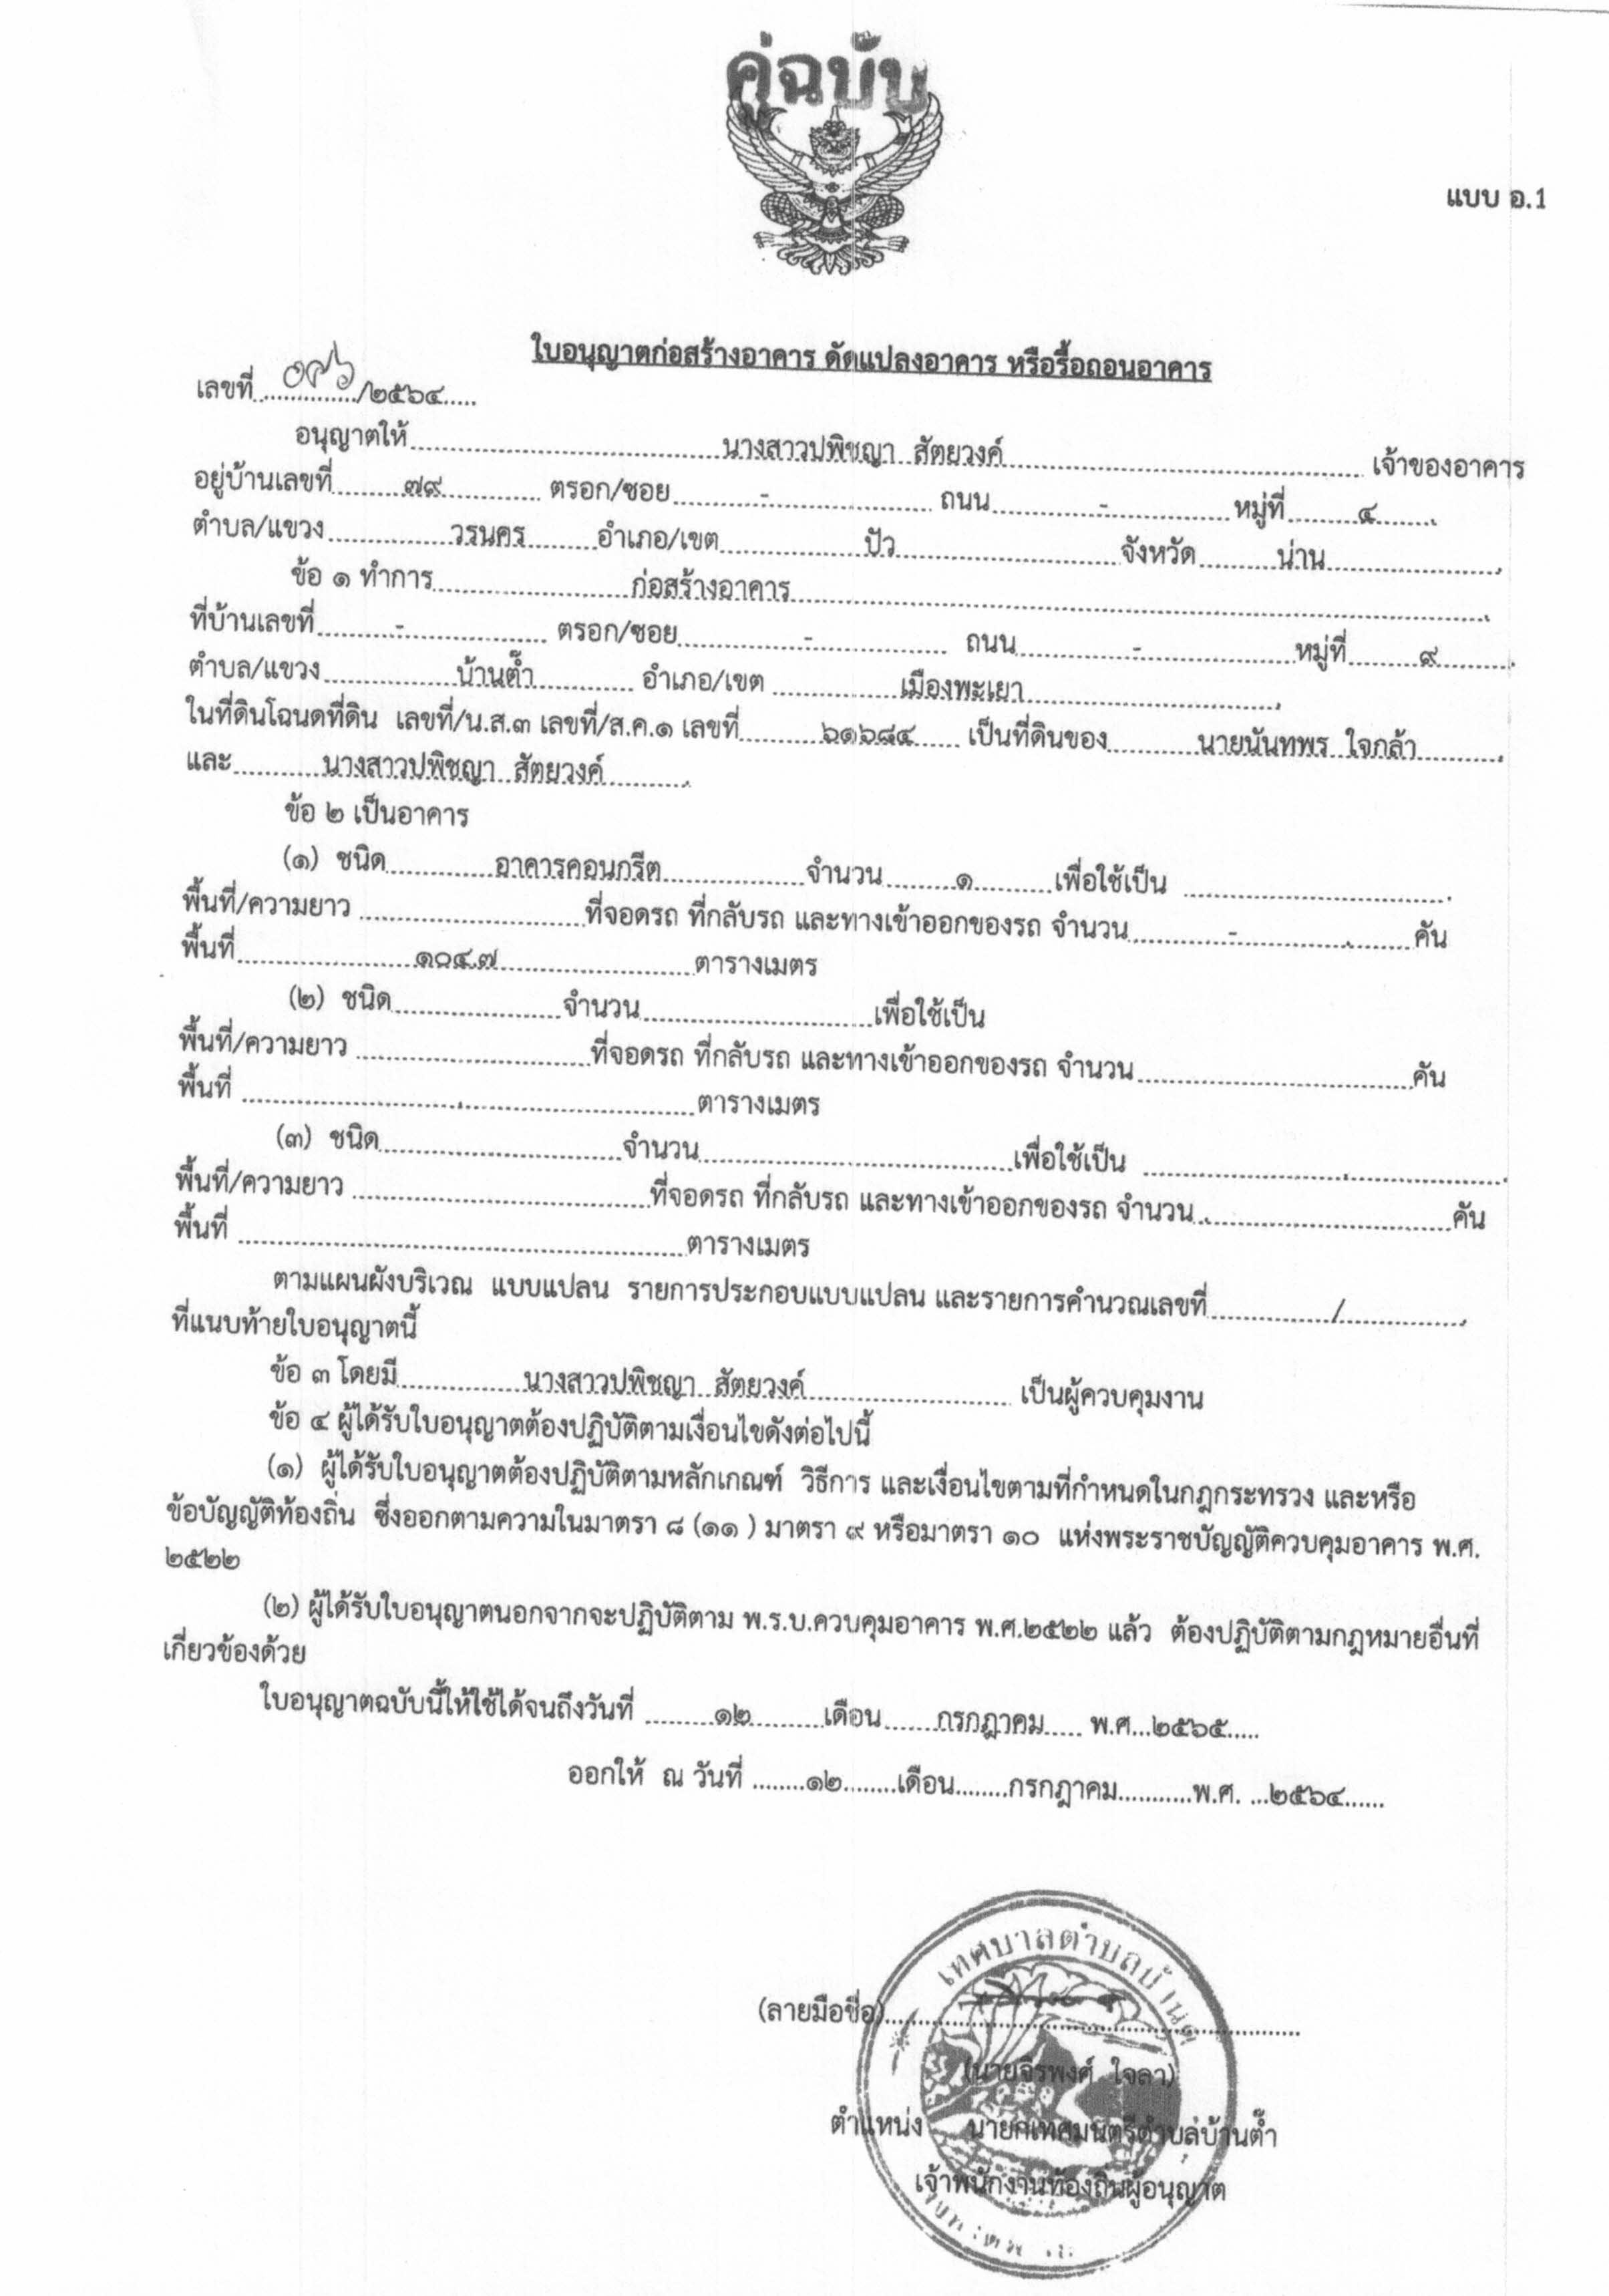 คู่ฉบับ
แบบ อ.1
ใบอนุญาตก่อสร้างอาคาร ดัดแปลงอาคาร หรือรื้อถอนอาคาร
เลขที่ ๐๙๖/๒๕๖๔
อนุญาตให้ นางสาวปพิชญา สัตยวงค์ เจ้าของอาคาร
อยู่บ้านเลขที่ ๗๙ ตรอก/ซอย - ถนน - หมู่ที่ ๔
ตำบล/แขวง วรนคร อำเภอ/เขต ปัว จังหวัด น่าน
ข้อ ๑ ทำการ ก่อสร้างอาคาร
ที่บ้านเลขที่ - ตรอก/ซอย - ถนน - หมู่ที่ ๙
ตำบล/แขวง บ้านต๊ำ อำเภอ/เขต เมืองพะเยา
ในที่ดินโฉนดที่ดิน เลขที่/น.ส.๓ เลขที่/ส.ค.๑ เลขที่ ๖๑๖๘๔ เป็นที่ดินของ นายนันทพร ใจกล้า
และ นางสาวปพิชญา สัตยวงค์
ข้อ ๒ เป็นอาคาร
(๑) ชนิด อาคารคอนกรีต จำนวน ๑ เพื่อใช้เป็น
พื้นที่/ความยาว ที่จอดรถ ที่กลับรถ และทางเข้าออกของรถ จำนวน - คัน
พื้นที่ ๑๐๔.๗ ตารางเมตร
(๒) ชนิด จำนวน เพื่อใช้เป็น
พื้นที่/ความยาว ที่จอดรถ ที่กลับรถ และทางเข้าออกของรถ จำนวน คัน
พื้นที่ ตารางเมตร
(๓) ชนิด จำนวน เพื่อใช้เป็น
พื้นที่/ความยาว ที่จอดรถ ที่กลับรถ และทางเข้าออกของรถ จำนวน คัน
พื้นที่ ตารางเมตร
ตามแผนผังบริเวณ แบบแปลน รายการประกอบแบบแปลน และรายการคำนวณเลขที่ /
ที่แนบท้ายใบอนุญาตนี้
ข้อ ๓ โดยมี นางสาวปพิชญา สัตยวงค์ เป็นผู้ควบคุมงาน
ข้อ ๔ ผู้ได้รับใบอนุญาตต้องปฏิบัติตามเงื่อนไขดังต่อไปนี้
(๑) ผู้ได้รับใบอนุญาตต้องปฏิบัติตามหลักเกณฑ์ วิธีการ และเงื่อนไขตามที่กำหนดในกฎกระทรวง และหรือ
ข้อบัญญัติท้องถิ่น ซึ่งออกตามความในมาตรา ๘ (๑๑ ) มาตรา ๙ หรือมาตรา ๑๐ แห่งพระราชบัญญัติควบคุมอาคาร พ.ศ.
๒๕๒๒
(๒) ผู้ได้รับใบอนุญาตนอกจากจะปฏิบัติตาม พ.ร.บ.ควบคุมอาคาร พ.ศ.๒๕๒๒ แล้ว ต้องปฏิบัติตามกฎหมายอื่นที่
เกี่ยวข้องด้วย
ใบอนุญาตฉบับนี้ให้ใช้ได้จนถึงวันที่ ๑๒ เดือน กรกฎาคม พ.ศ. ๒๕๖๕
ออกให้ ณ วันที่ ๑๒ เดือน กรกฎาคม พ.ศ. ๒๕๖๔
เทศบาลตำบลบ้านต๊ำ
(ลายมือชื่อ)
(นายจีรพงศ์ ใจลา)
ตำแหน่ง นายกเทศมนตรีตำบลบ้านต๊ำ
เจ้าพนักงานท้องถิ่นผู้อนุญาต